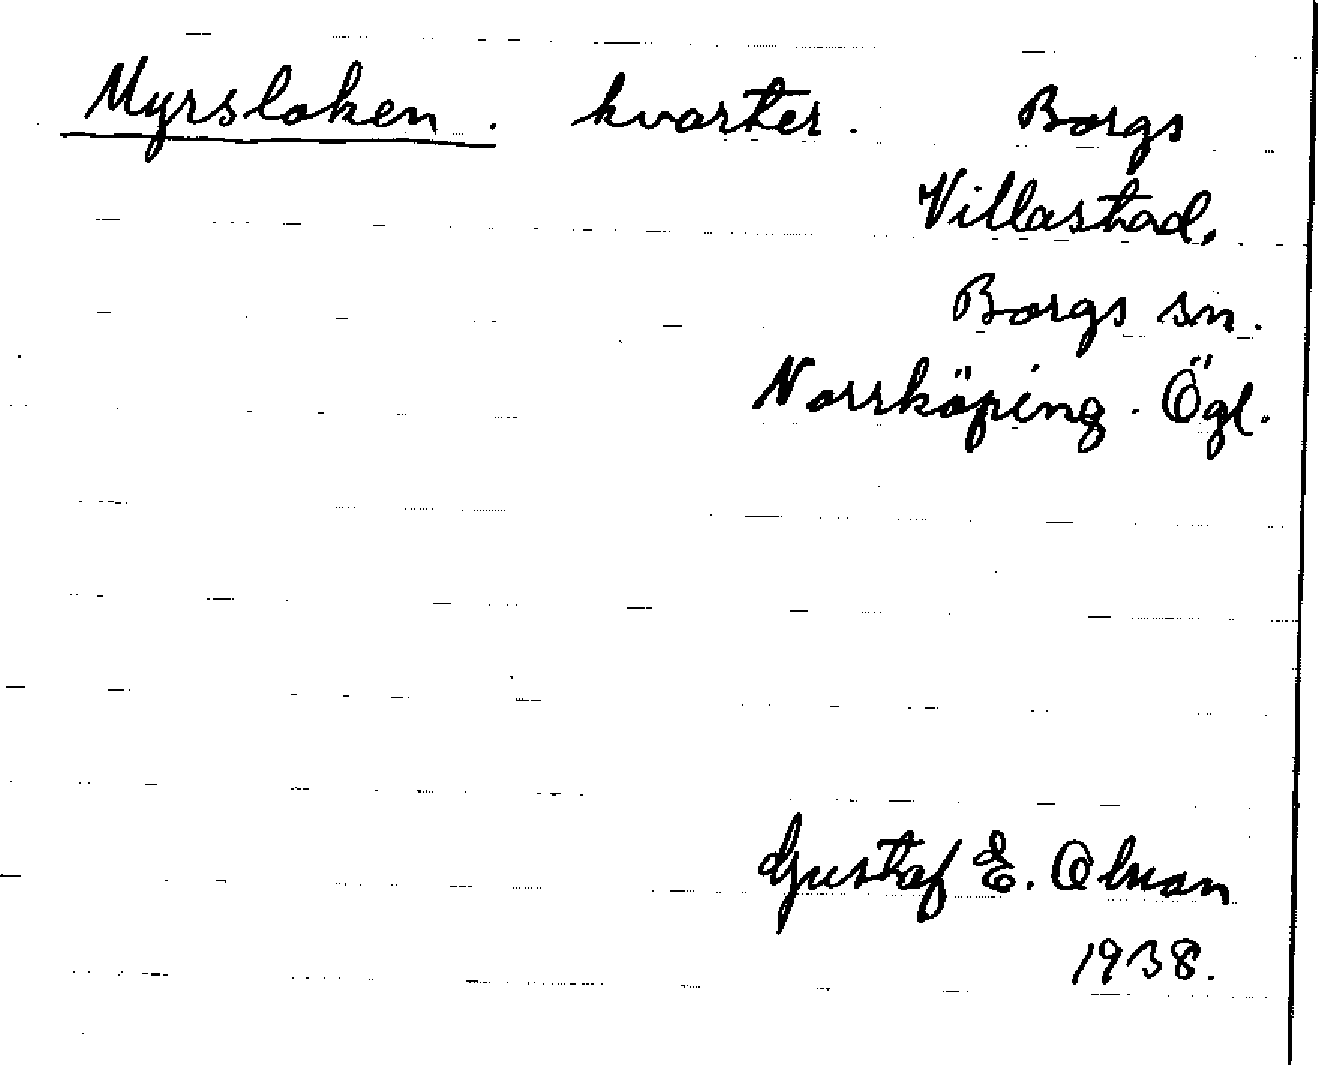 Myrsloken. kvarter. Borgs
Villastad.
Borgs sn.
Norrköping. Ögl.
Gustaf E. Olson
1938.